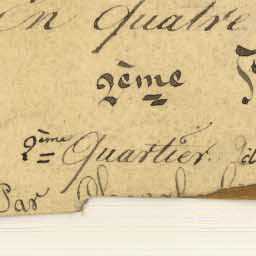 En Quatre
2ème
2ème Quartier.
Par